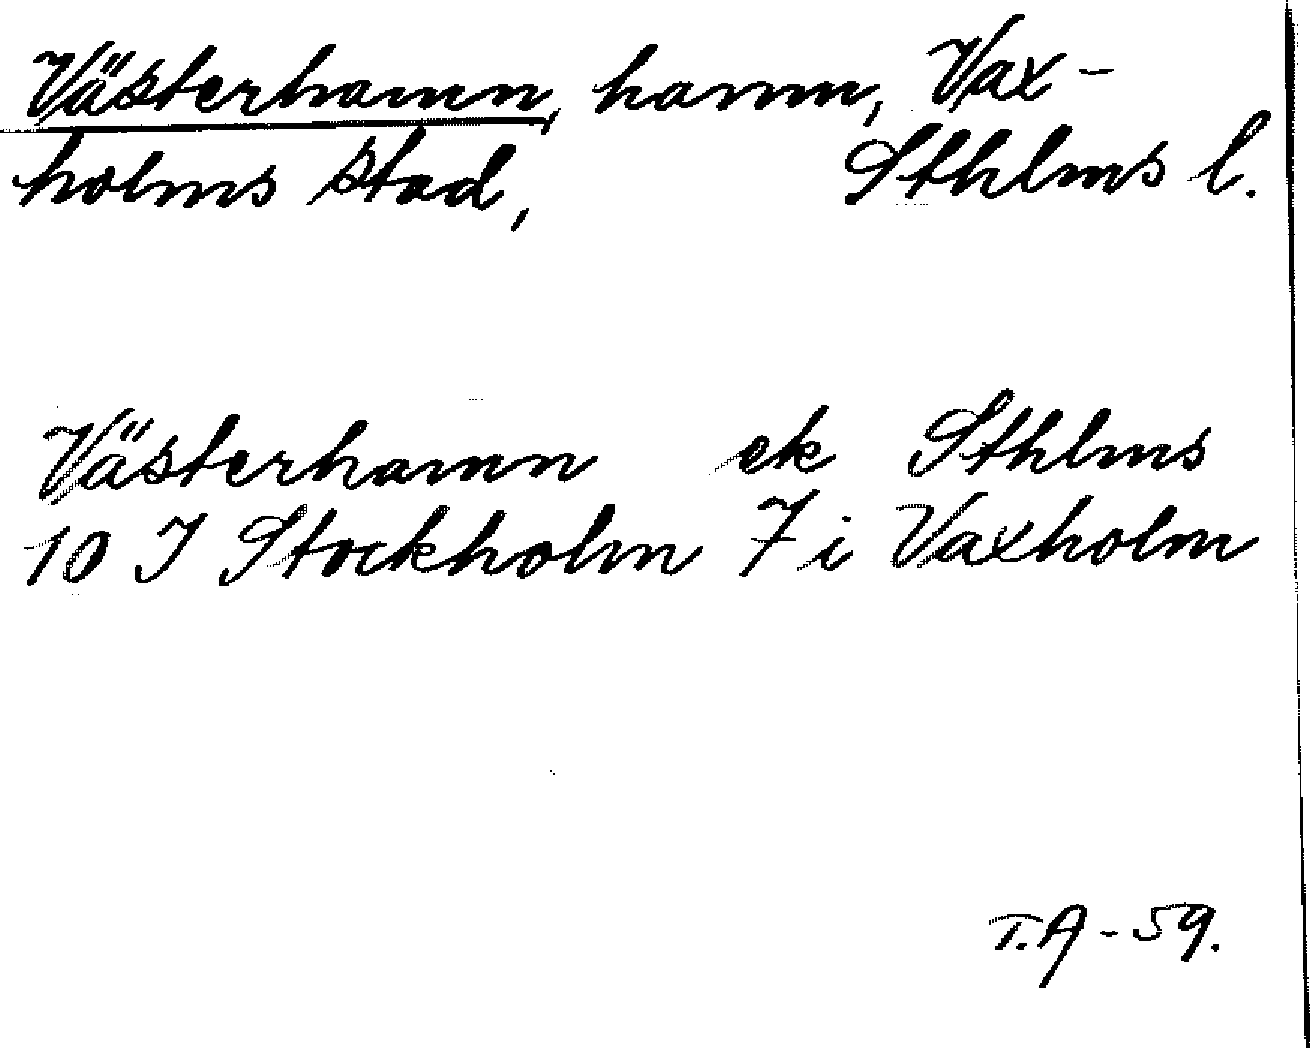 Västerhamn, hamn, Vax-
holms stad, Sthlms l.
Västerhamn ek Sthlms
10 I Stockholm 7 i Vaxholm
T.A-59.